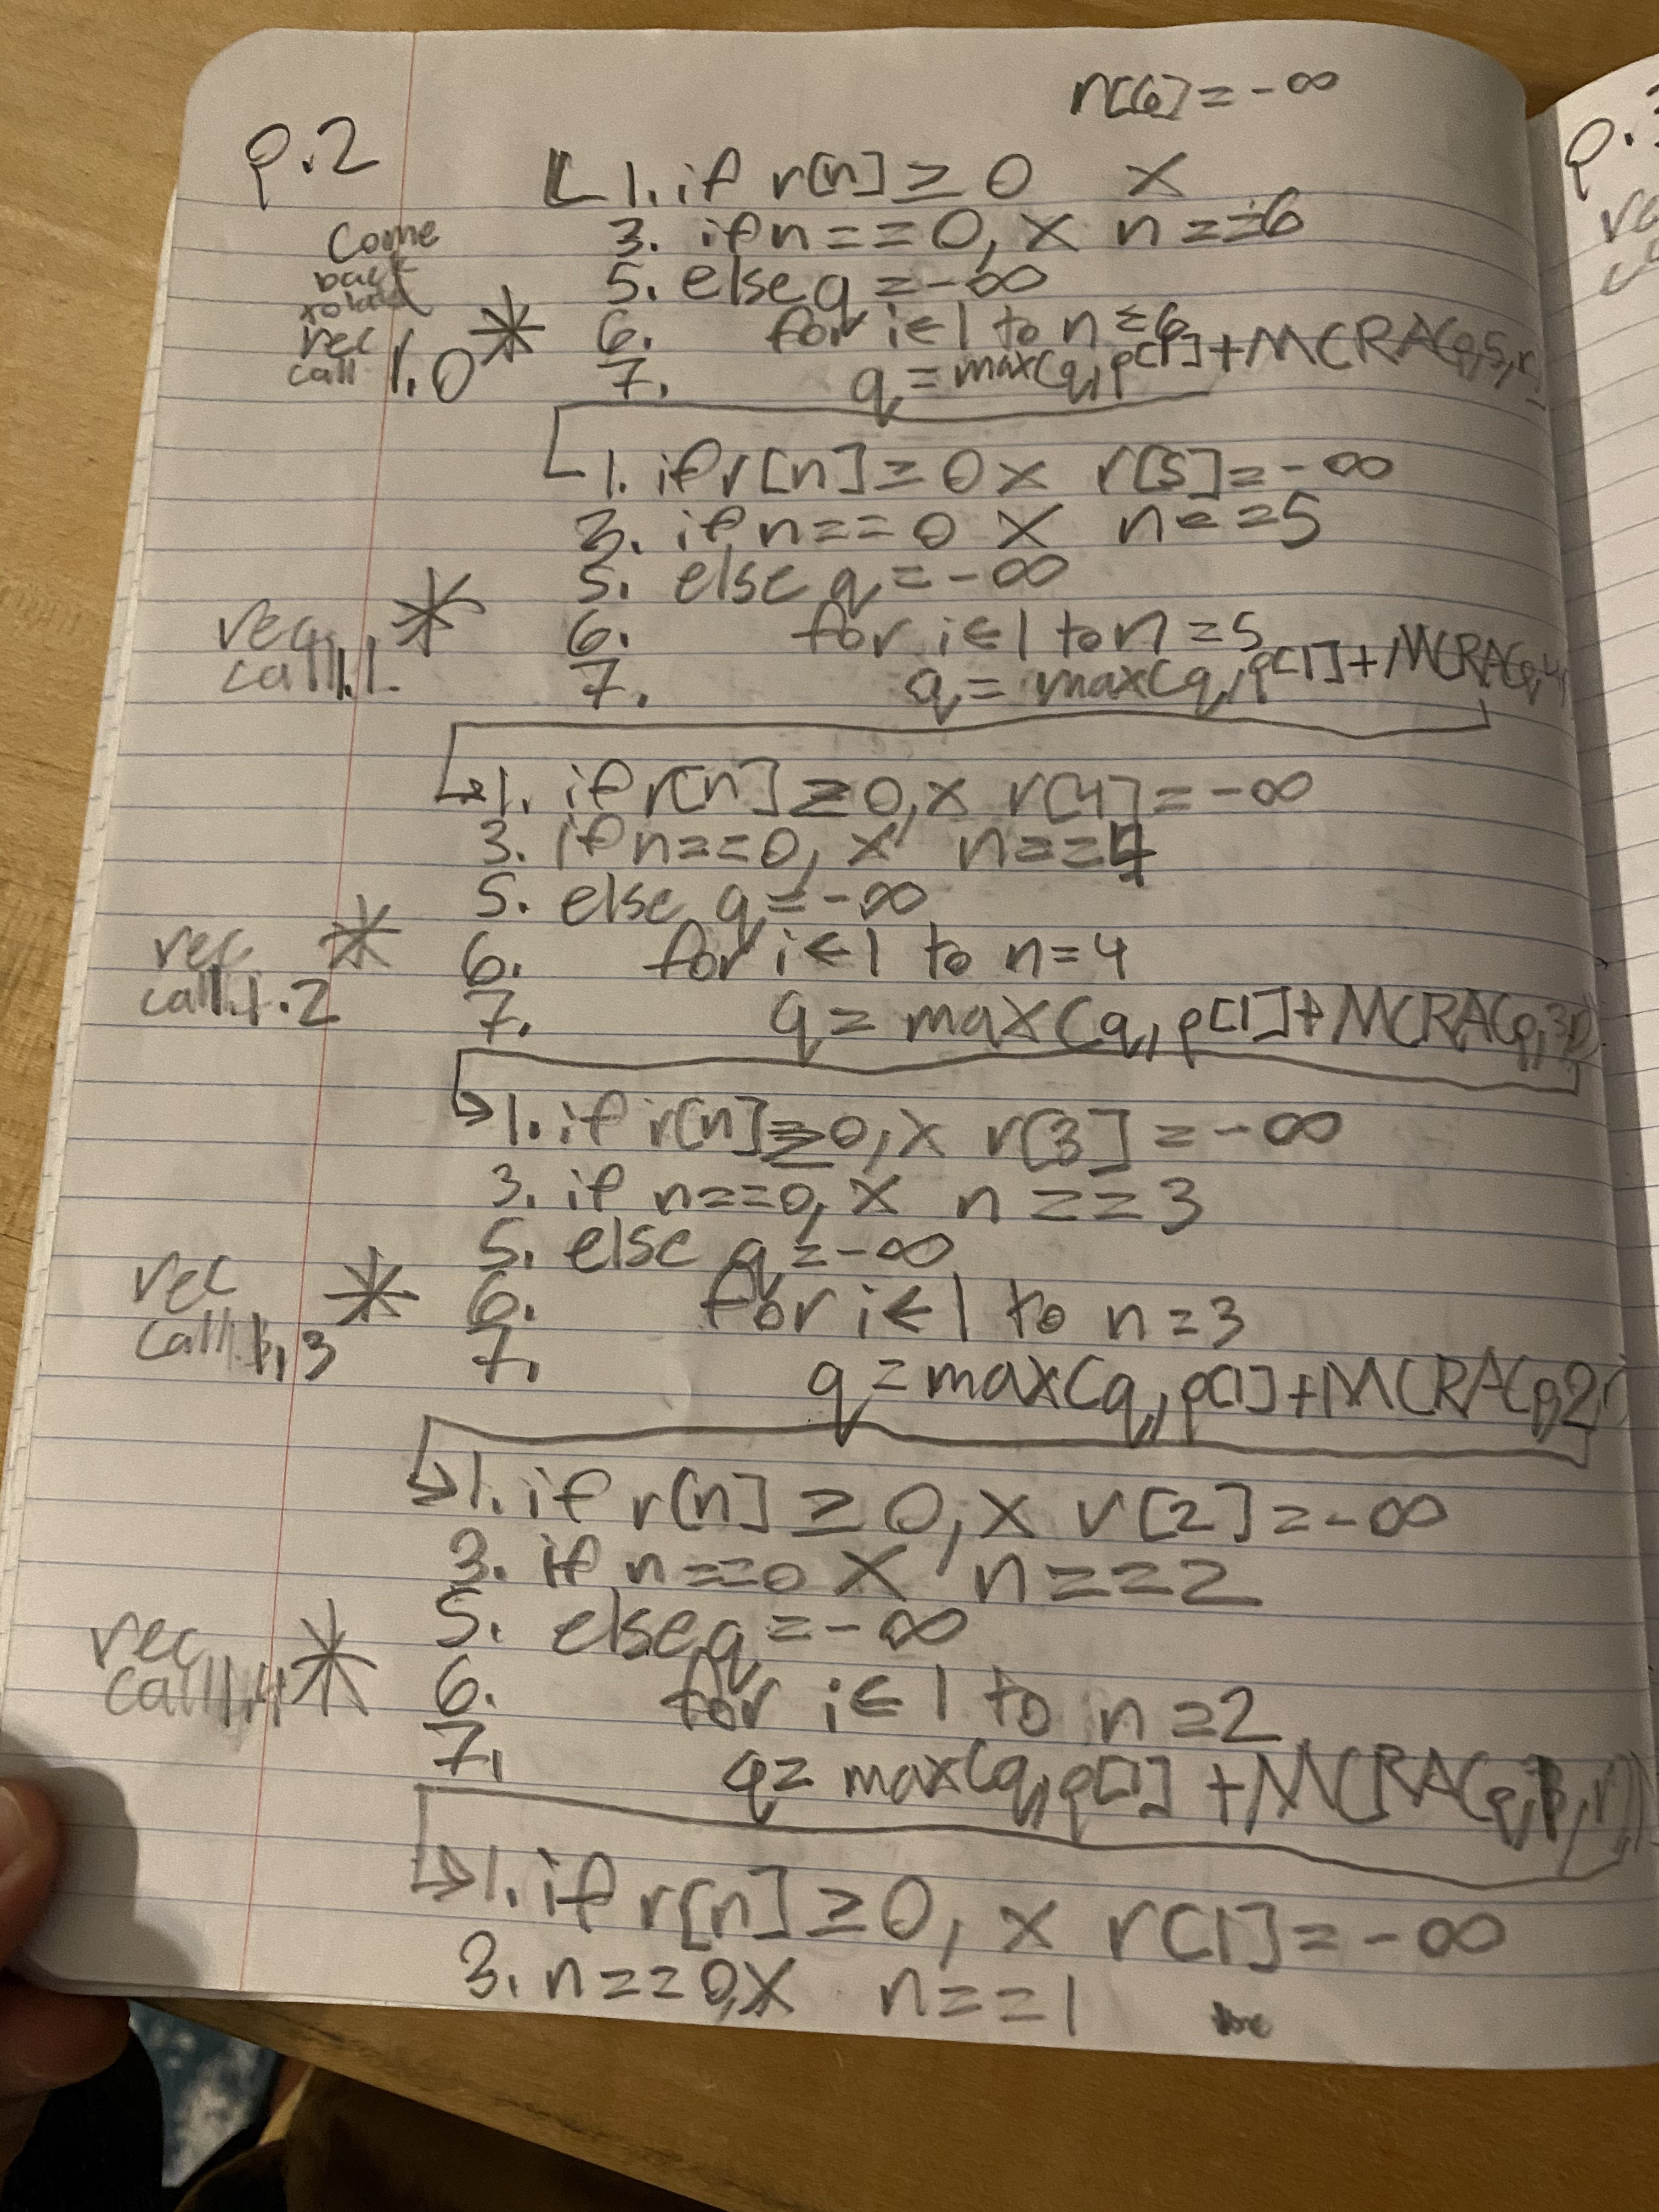 r[6] = -∞
p.2
1. if r[n] ≥ 0 X
3. if n==0, X n==6
Come
back
5. else q = -∞
rec
call 1.0 * 6. for i←1 to n=6
7. q = max(q, p[1] + MCRA(p,5,r)
1. if r[n] ≥ 0 X r[5] = -∞
3. if n==0 X n==5
5. else q = -∞
rec
call 1.1 * 6. for i←1 to n=5
7. q = max(q, p[1] + MCRA(p,4,
1. if r[n] ≥ 0, X r[4] = -∞
3. if n==0, X n==4
5. else q = -∞
rec
call 1.2 * 6. for i←1 to n=4
7. q = max(q, p[1] + MCRA(p,3,r)
1. if r[n] ≥ 0, X r[3] = -∞
3. if n==0, X n==3
5. else q = -∞
rec
call 1.3 * 6. for i←1 to n=3
7. q = max(q, p[1] + MCRA(p,2,r)
1. if r[n] ≥ 0, X r[2] = -∞
3. if n==0 X n==2
5. else q = -∞
rec
call 1.4 * 6. for i←1 to n=2
7. q = max(q, p[1] + MCRA(p,1,r))
1. if r[n] ≥ 0, X r[1] = -∞
3. n==0, X n==1
p.